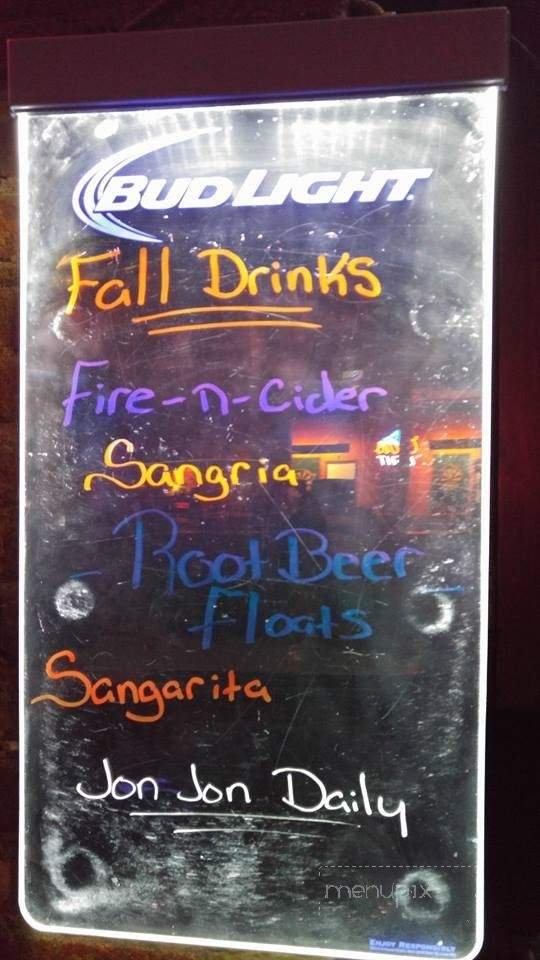 BUD LIGHT
Fall Drinks
Fire-n-Cider
Sangria
- Root Beer -
Floats
Sangarita
Jon Jon Daily
menupix
ENJOY RESPONSIBLY